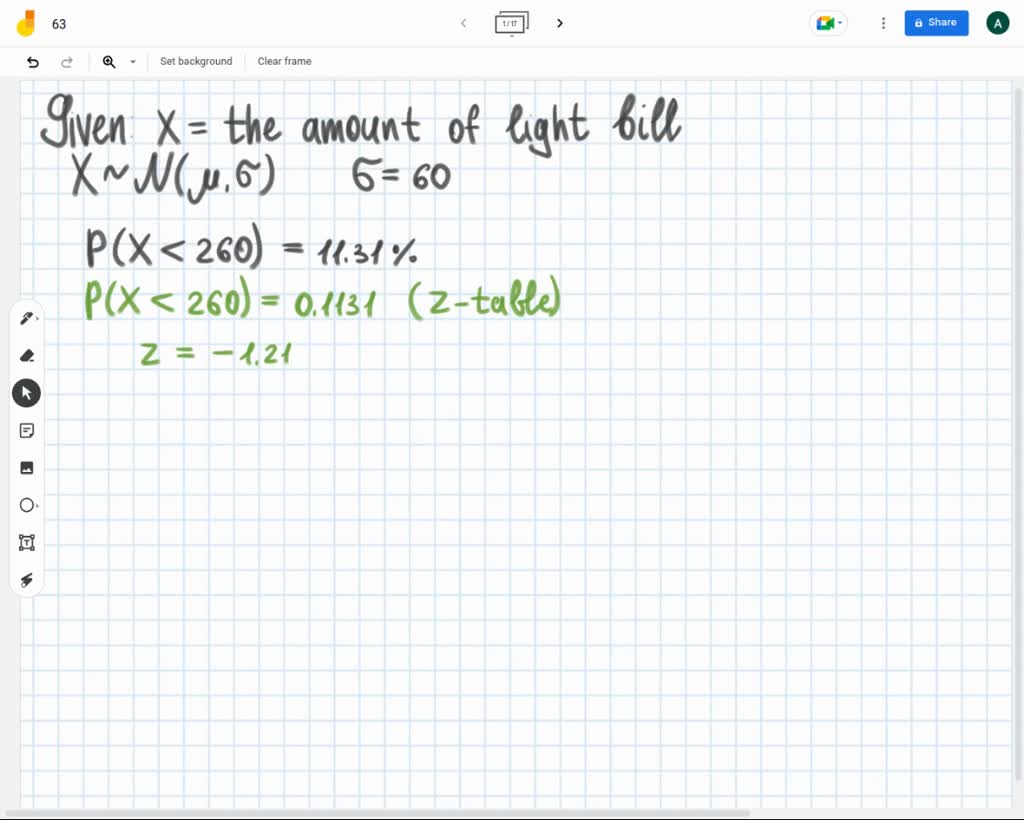 63
1/17
Share
A
Set background
Clear frame
Given: X = the amount of light bill
X ~ N(μ, σ) σ = 60
P(X < 260) = 11.31%
P(X < 260) = 0.1131 (z-table)
z = -1.21